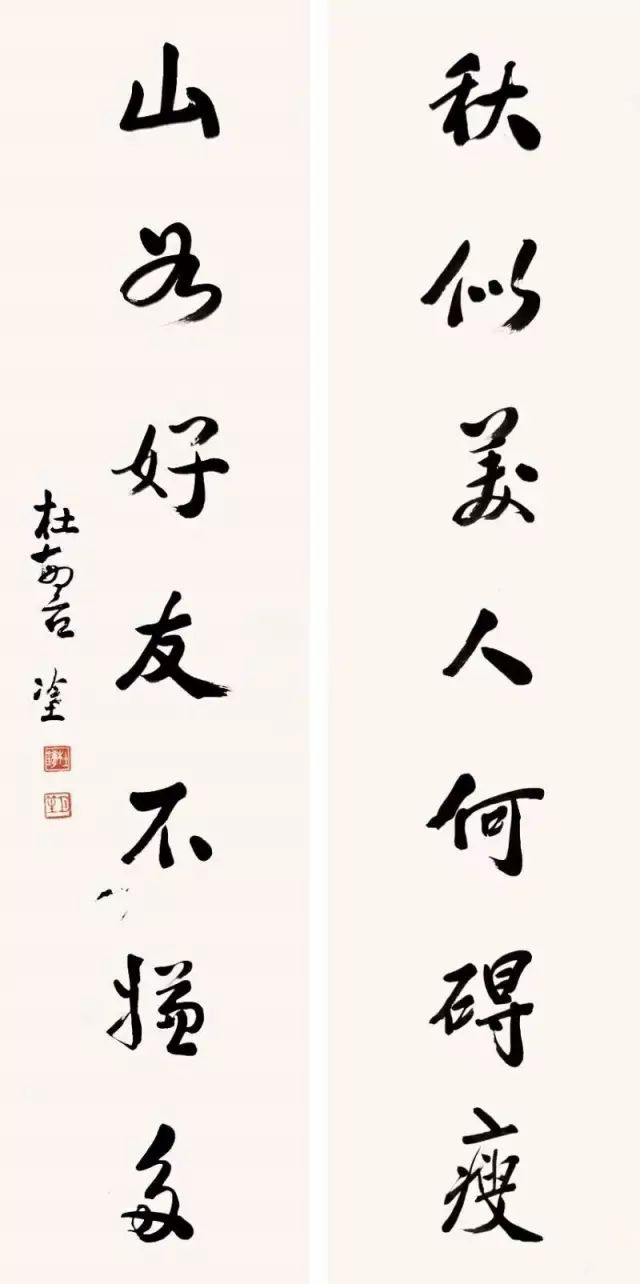 秋似美人何碍瘦
山若好友不嫌多
杜 塗